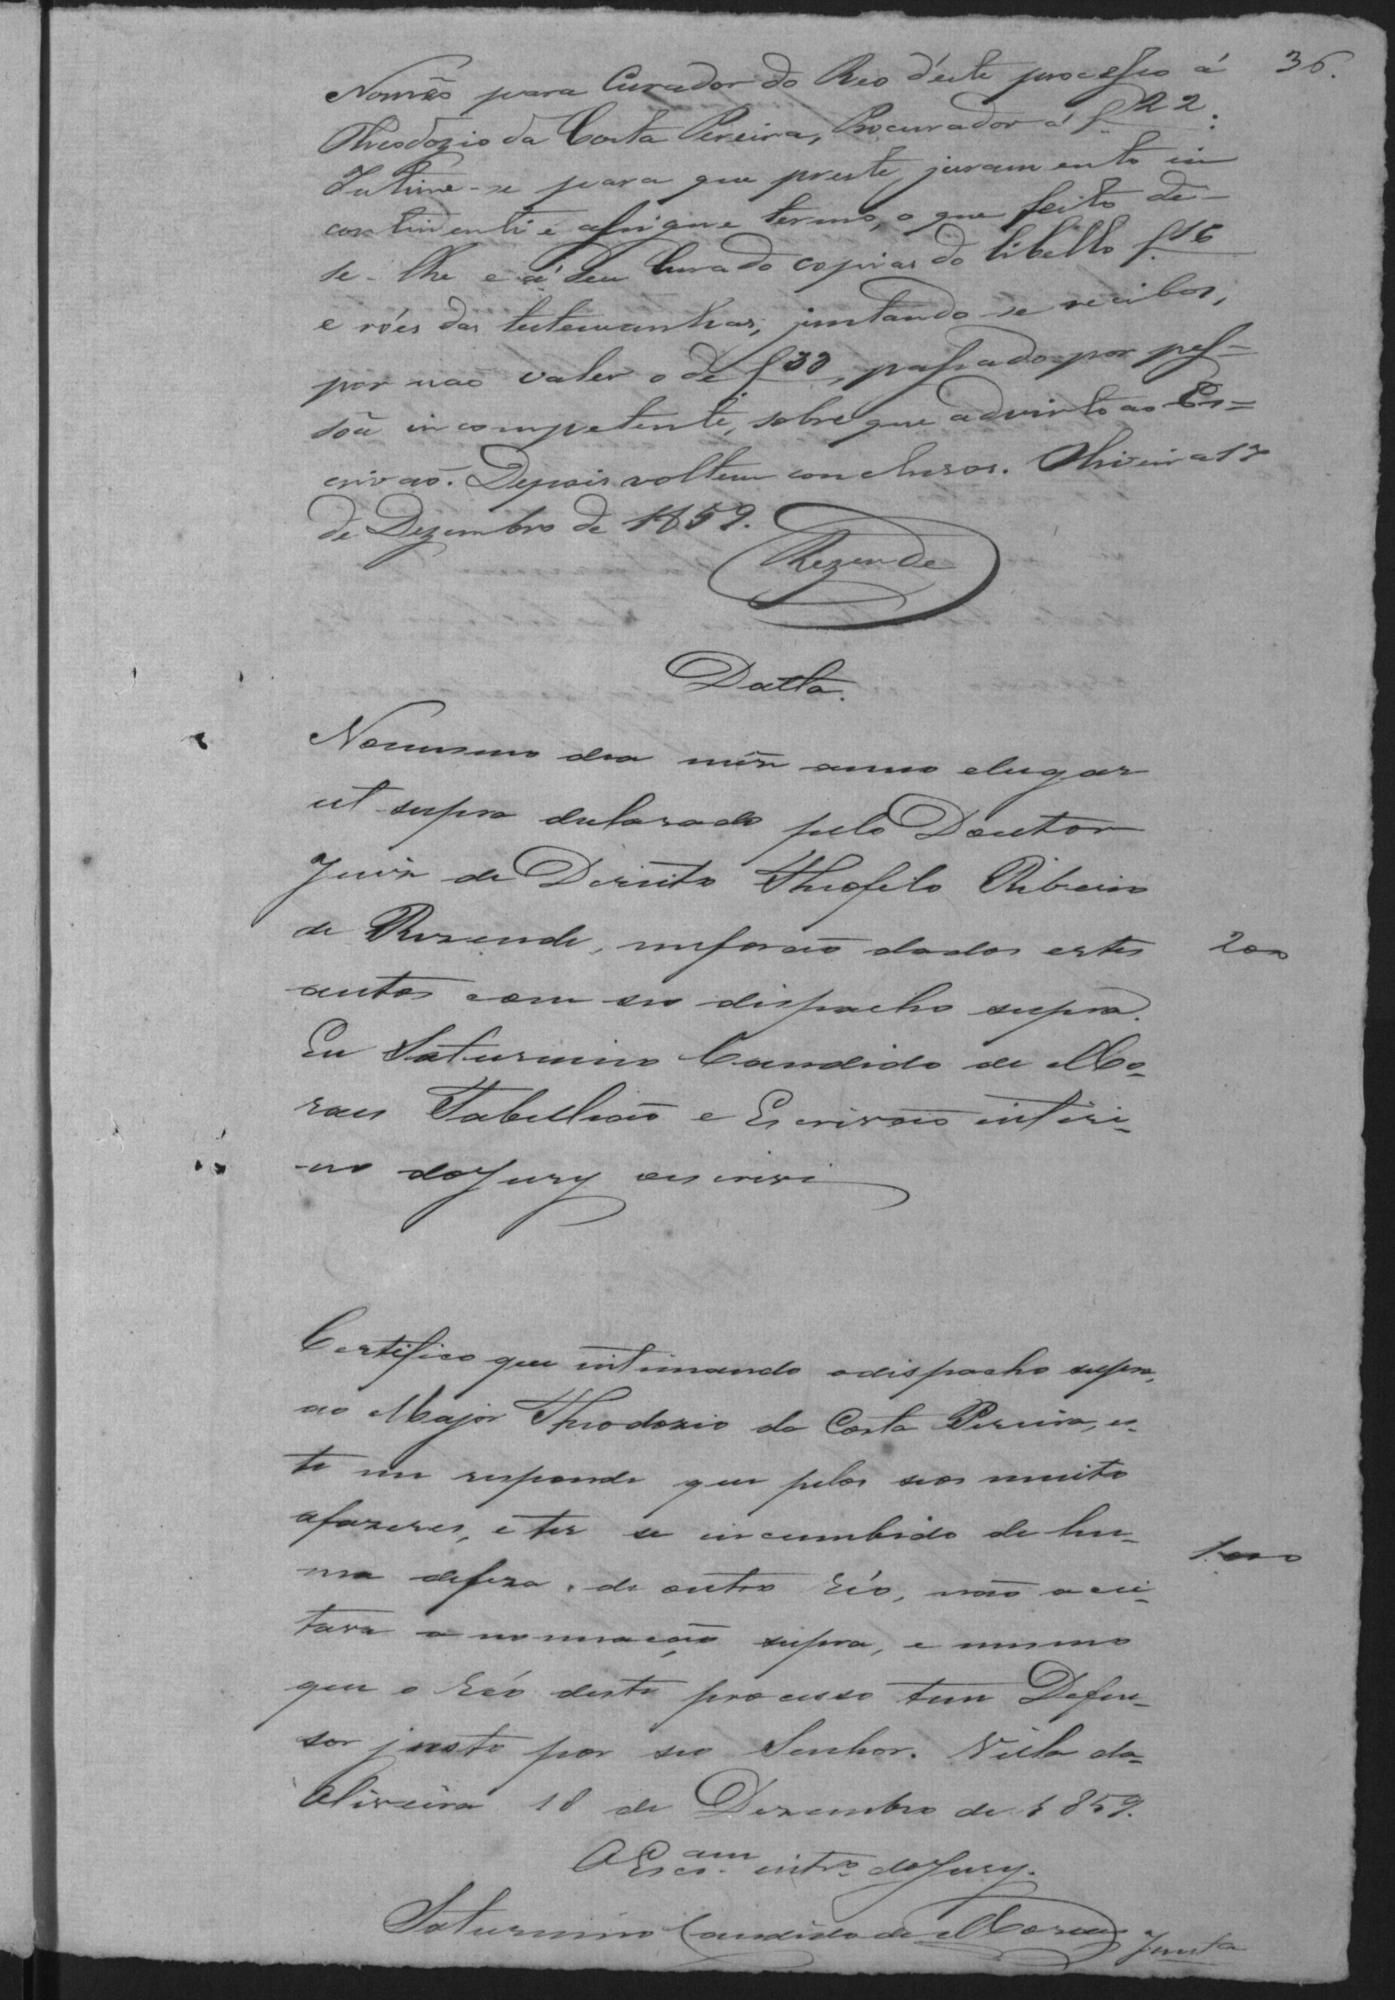 36.
Nomeio para Curador do Reo d'este processo á
Theodozio da Costa Pereira, Procurador á f. 22.
Intime-se para que preste juramento in
continenti e assigne termo, o que feito dê-
se-lhe e á seu Curado copias do libello f. 16
e róes das testemunhas, juntando-se recibos,
por não valer o de f 33, passado por pes-
sôa incompetente, sobre que advirto ao Es-
crivão. Depois voltem conclusos. Oliveira 17
de Dezembro de 1859.
Rezende
Datta.
No mesmo dia mês anno elugar
ut supra declarado pelo Doutor
Juis de Direito Theofilo Ribeiro
de Rezende, meforão dados estes
200
autos com seo dispacho supra.
Eu Saturnino Candido de Mo-
raes Tabellião e Escrivão interi-
no do Jury escrivi
Certifico que intimando odispacho supra,
ao Major Theodozio da Costa Pereira, es-
te me responde que pelos seos muito
afazeres, e ter se incumbido de hu-
ma defeza, de outro Réo, não acei-
1000
tava a nomeação supra, e mesmo
que o Réo deste processo tem Defen-
sor justo por seo Senhor. Villa da
Oliveira 18 de Dezembro de 1859.
O Escr.am intr.o do Jury.
Saturnino Candido de Moraes
Junta